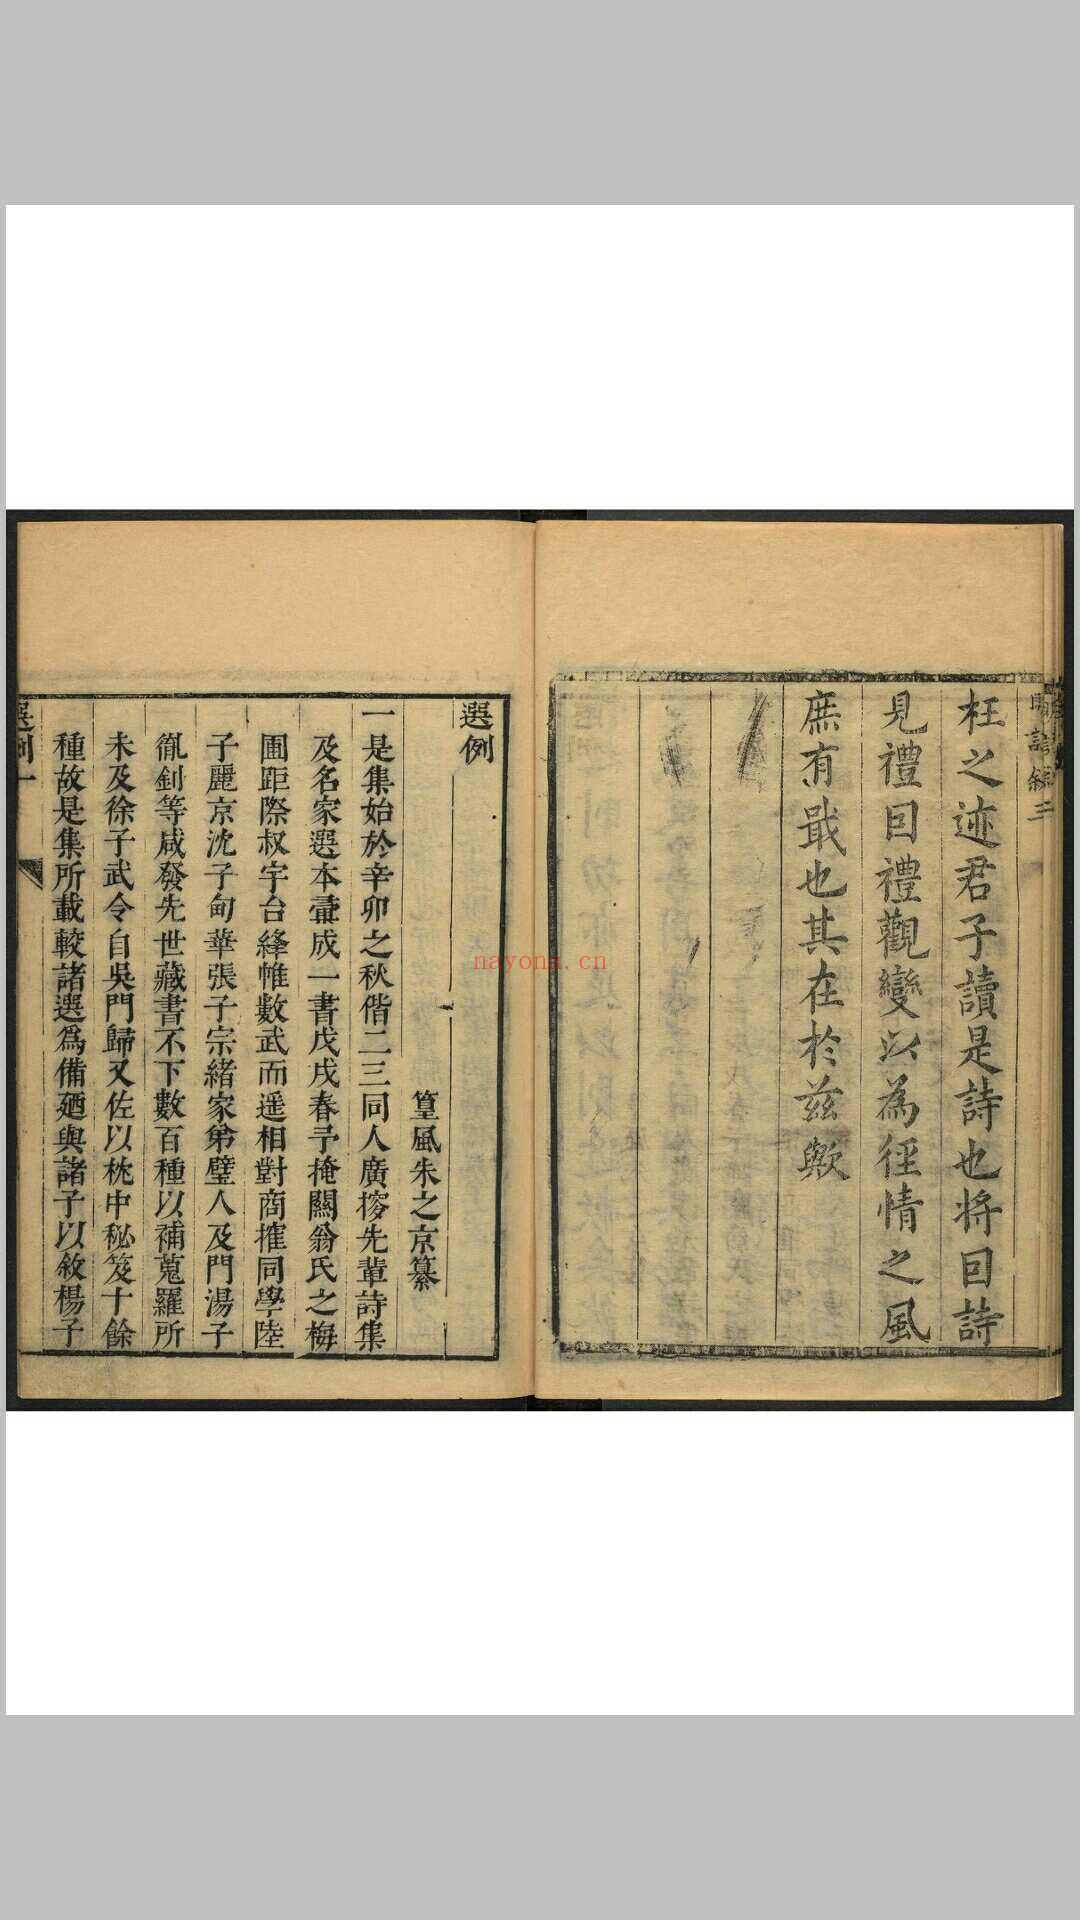 枉之迹君子讀是詩也將因詩
見禮因禮觀變以為徑情之風
庶有戢也其在於茲歟
選例
篁風朱之京纂
一是集始於辛卯之秋偕二三同人廣搜先輩詩集
及名家選本彙成一書戊戌春予掩關翁氏之梅
圃距際叔宇台絳帷數武而遥相對商搉同學陸
子麗京沈子甸華張子宗緒家弟璧人及門湯子
胤釗等咸發先世藏書不下數百種以補蒐羅所
未及徐子武令自吳門歸又佐以枕中秘笈十餘
種故是集所載較諸選爲備廼與諸子以敘楊子
選例一
nayona.cn